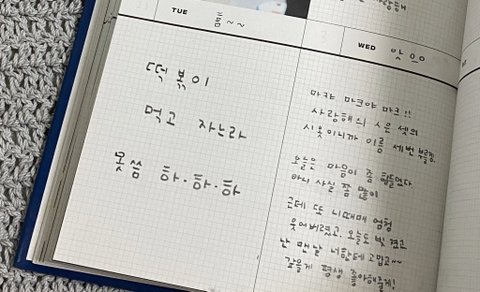 TUE
흠~~
떡볶이
먹고 자느라
못씀 하.하.하
WED
앗 으아
마캬 마크야 마크!!
사랑해의 ㅅ은 셋의
시옷이니까 이름 세번 불렀당
오늘은 마음이 좀 힘들었다
아니 사실 쫌 많이
근데 또 니때매 엄청
웃어버렸고. 오늘도 빚 졌고
난 맨날 너한테 고맙고~~
갚을게 평생 좋아해줄게!